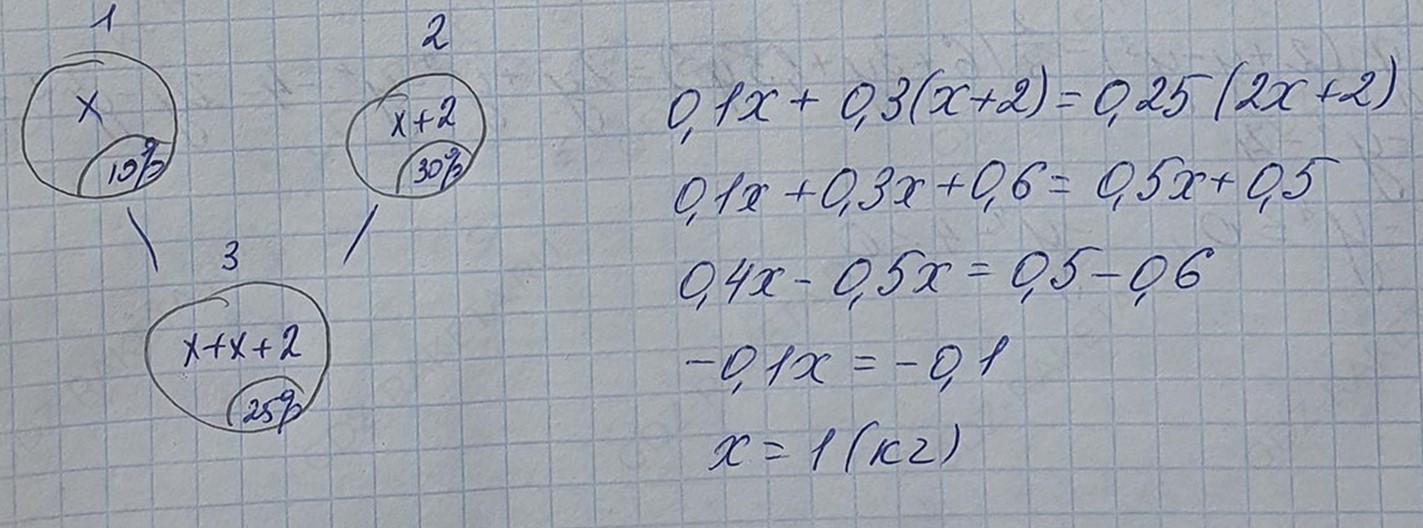 1
2
x
10%
x+2
30%
3
x+x+2
25%
0,1x + 0,3(x+2) = 0,25 (2x+2)
0,1x + 0,3x + 0,6 = 0,5x + 0,5
0,4x - 0,5x = 0,5 - 0,6
-0,1x = -0,1
x = 1 (кг)